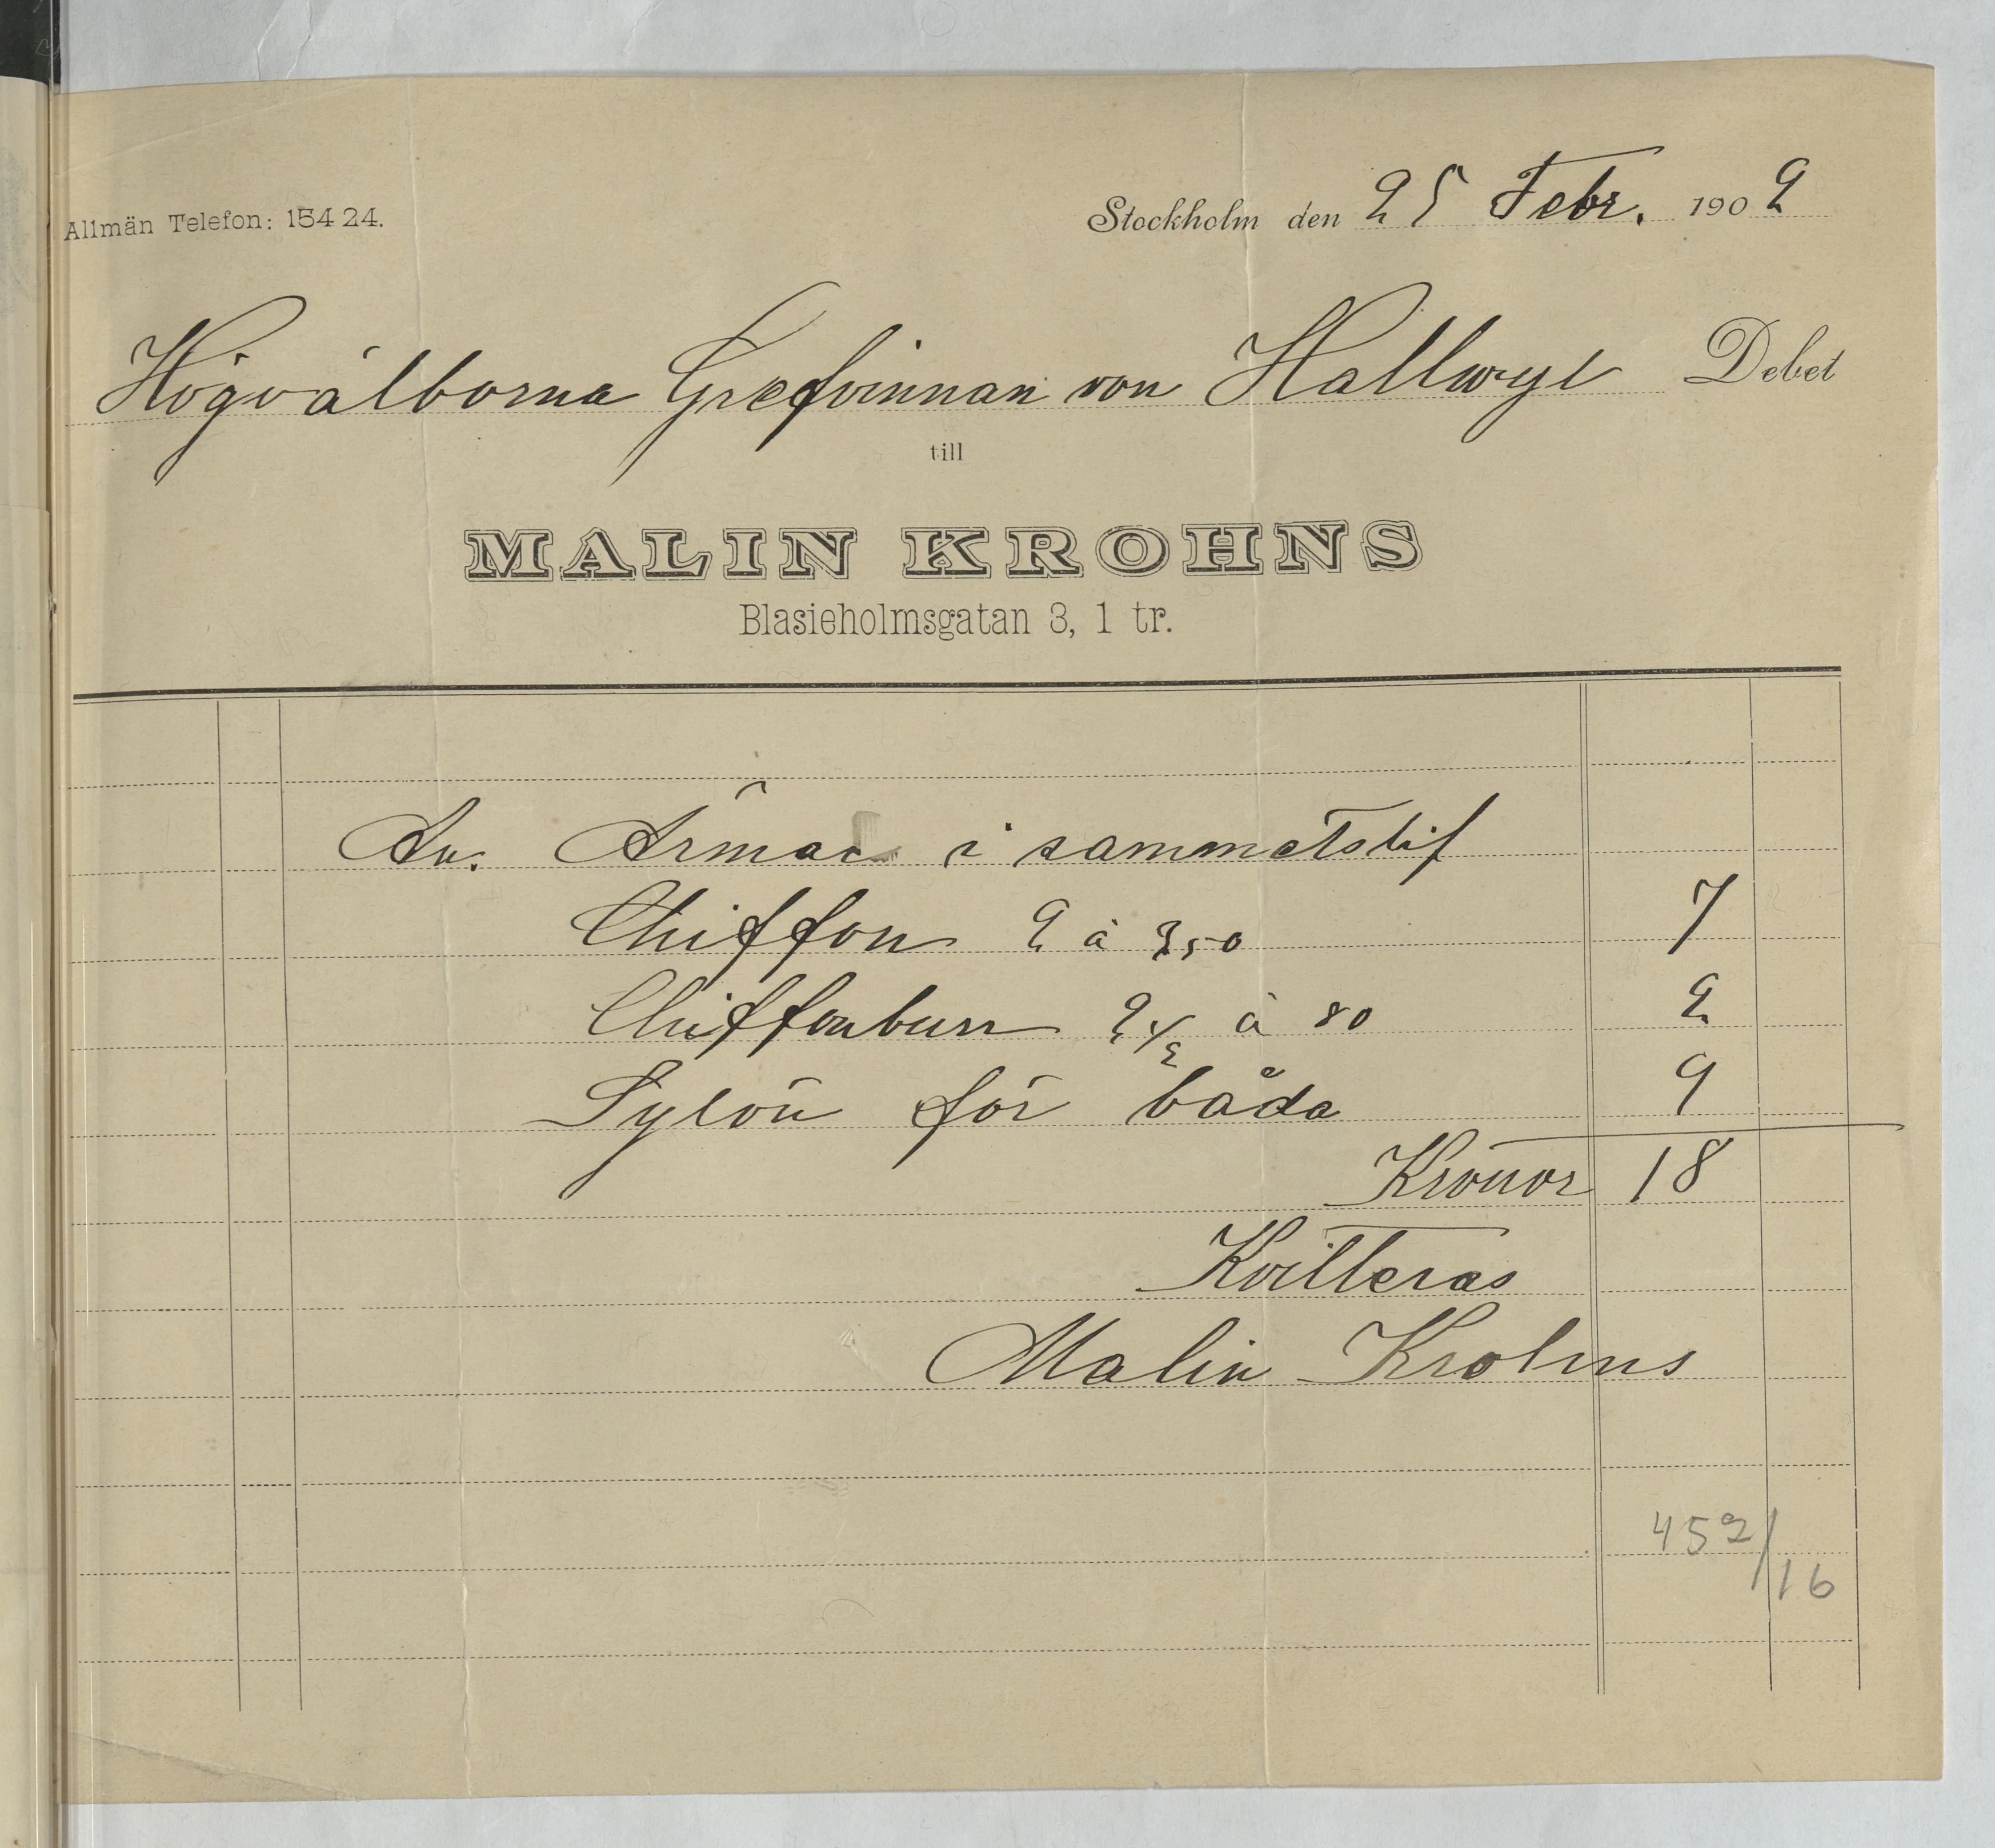 Allmän Telefon: 154 24.
Stockholm den 25 Febr. 1902
Högvälborna Grefvinnan von Hallwyl Debet
till
MALIN KROHNS
Blasieholmsgatan 3, 1 tr.
Ärmar i sammetslif
Chiffon 2 à 350 7
2 1/2 à 80 2
Sylön för båda 9
Kronor 18
Kvitteras
Malin Krohns
452/16